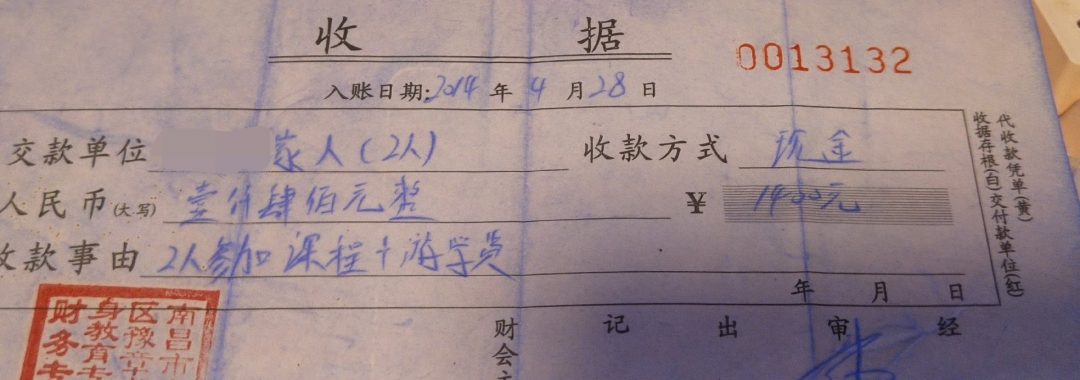 收 据
0013132
入账日期:2014 年 4 月 28 日
交款单位 家人(2人) 收款方式 现金
人民币(大写) 壹仟肆佰元整 ¥ 1400元
收款事由 2人参加课程+游学费
年 月 日
财会 记 出 审 经
代收款凭单(黄)
收据存根(白)交付款单位(红)
南昌市
区豫章
身教育
财务专